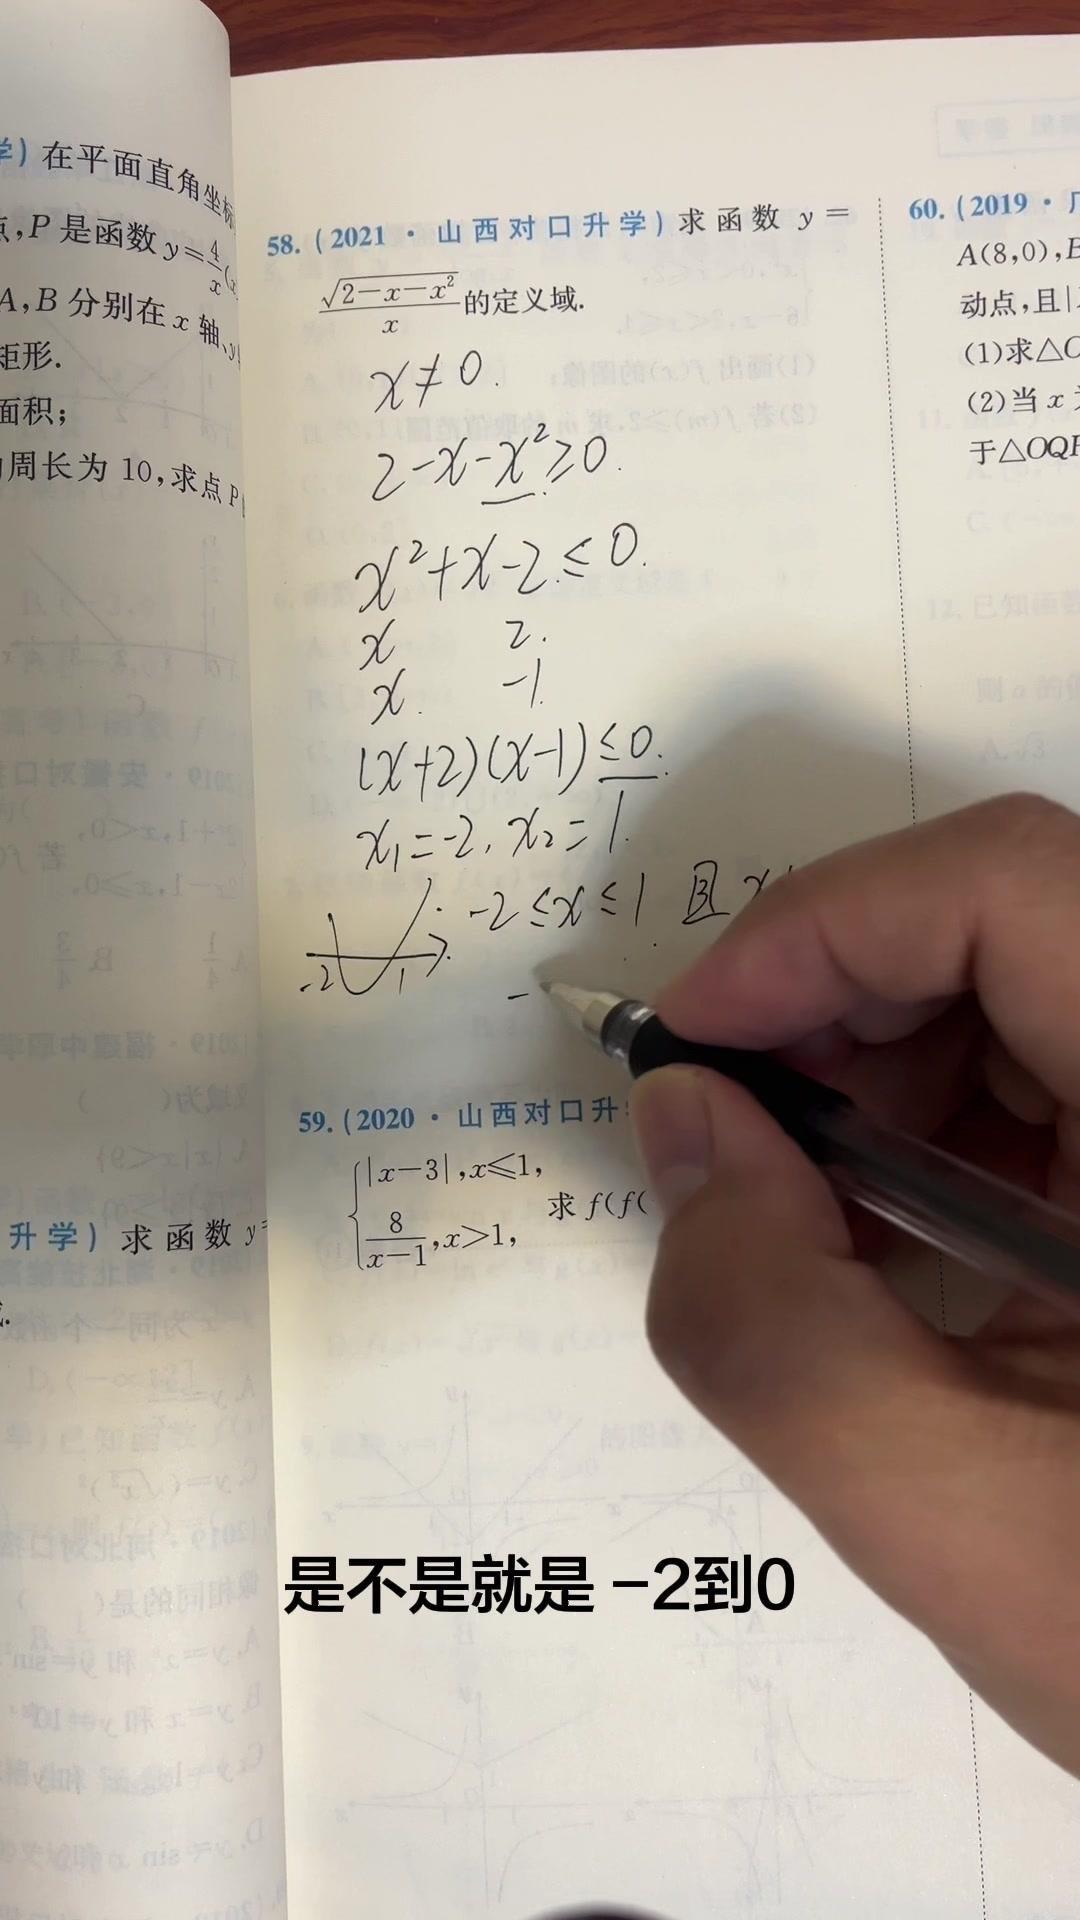 学) 在平面直角坐标
点,P 是函数 y=4/x(x
A,B 分别在 x 轴、y
矩形.
面积;
周长为 10,求点 P
升学) 求函数 y=
58. (2021 · 山西对口升学) 求函数 y=
√(2-x-x²)/x 的定义域.
x≠0.
2-x-x²≥0.
x²+x-2≤0.
x 2.
x. -1
(x+2)(x-1)≤0.
x₁=-2, x₂=1.
-2≤x≤1 且 x
-2 1
-
59. (2020 · 山西对口升
|x-3|,x≤1,
8/(x-1),x>1,
求 f(f(
60. (2019 ·
A(8,0),B
动点,且|
(1)求△O
(2)当 x
于△OQP
是不是就是 -2到0